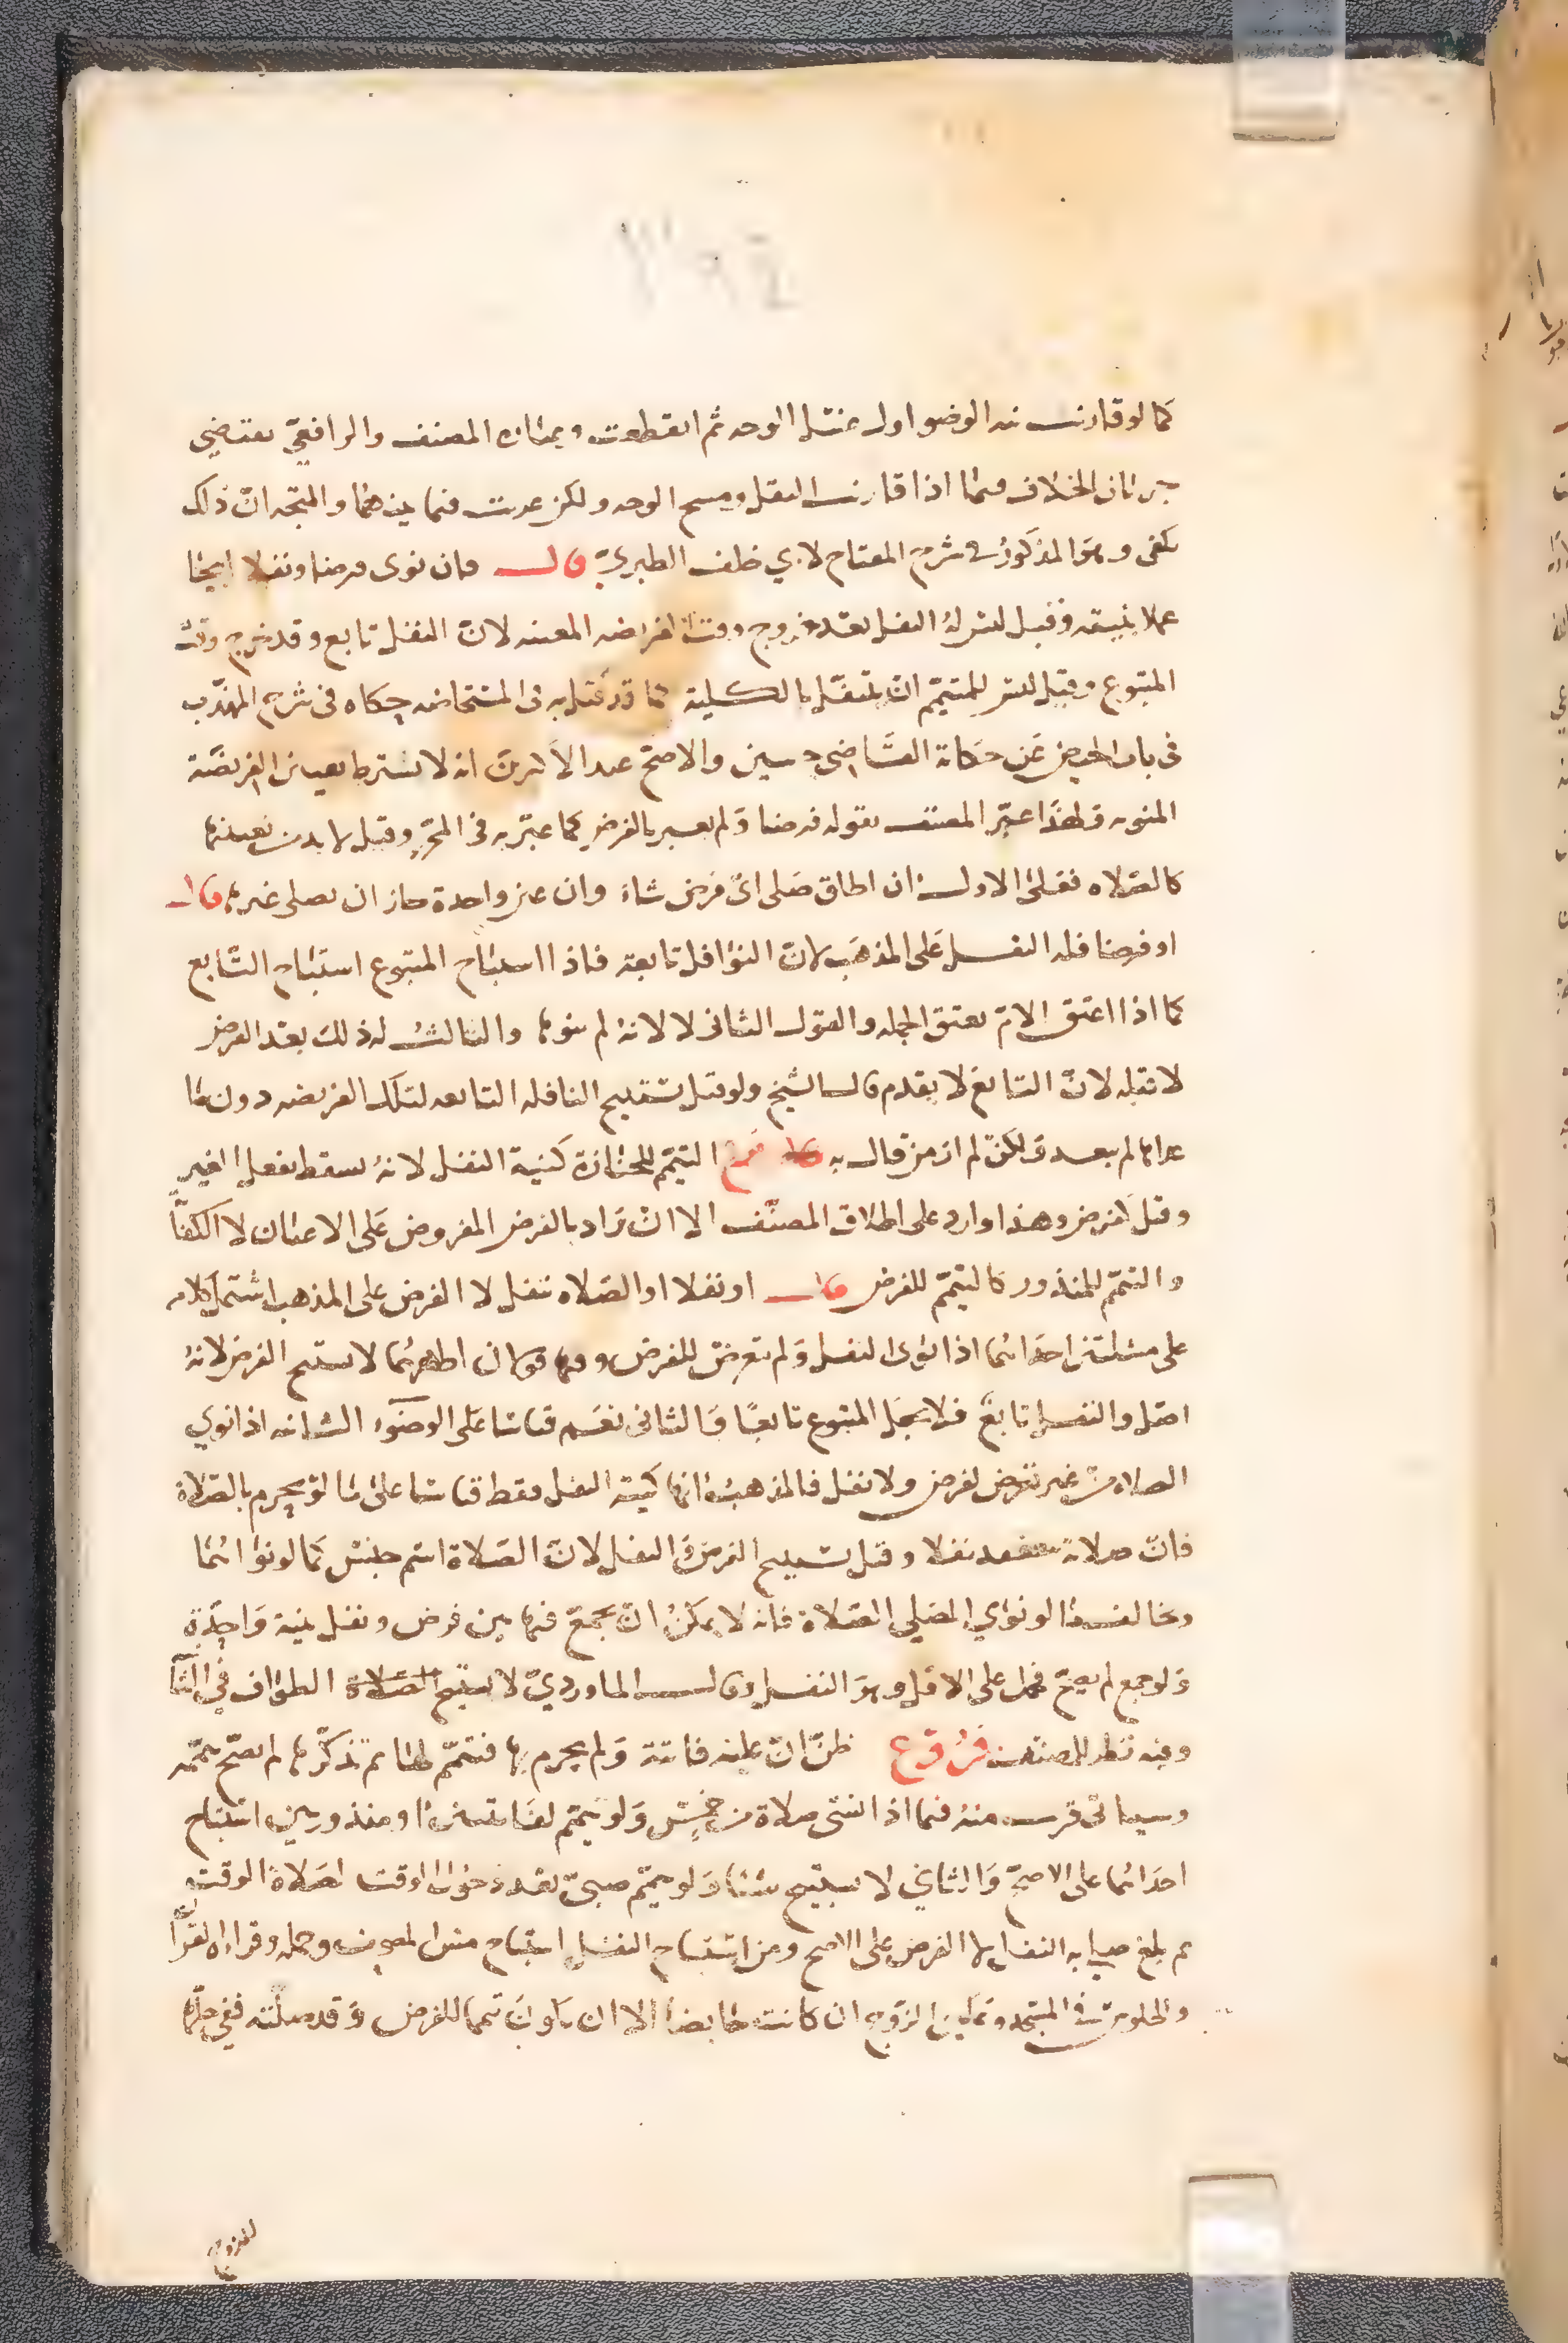 كما لو قارنت نية الوضوء اول غسل الوجه ثم انقطعت وعبارة المصنف والرافعي تقتضي
جريان الخلاف فيما اذا قارنت النقل ومسح الوجه ولكن عزبت فيما بينهما والمتجه ان ذلك
يكفي وهو المذكور في شرح المفتاح لابي خلف الطبري قال فان نوى فرضا ونفلا ابيحا
عملا بنيته وقيل ليس له النفل بعد خروج وقت الفريضه المعينه لان النفل تابع وقد خرج وقت
المتبوع وقيل ليس للمتيمم ان يتنفل بالكلية كما قد قيل به في المستحاضه حكاه في شرح المهذب
في باب الحيض عن حكاية القاضي حسين والاصح عند الاكثرين انه لا يشترط تعيين الفريضة
المنويه ولهذا عبر المصنف بقوله فرضا ولم يعبر بالفرض كما عبر به في المحرر وقيل لا بد من تعيينها
كالصلاه فعلى الاول ان اطلق صلى اي فرض شاء وان عين واحدة جاز ان يصلى غيرها قال
او فرضا فله النفل على المذهب لان النوافل تابعة فاذا استباح المتبوع استباح التابع
كما اذا اعتق الام يعتق الحمل والقول الثاني لا لانه لم ينوها والثالث له ذلك بعد الفرض
لا قبله لان التابع لا يقدم قال الشيخ ولو قيل يستبيح النافله التابعه لتلك الفريضه دون ما
عداها لم يبعد ولكن لم ار من قال به فرع التيمم للجنازة كنية النفل لانه يسقط بفعل الغير
وقيل كفرض وهذا وارد على اطلاق المصنف الا ان يراد بالفرض المفروض على الاعيان لا الكفا
والتيمم للمنذور كالتيمم للفرض قال او نفلا او الصلاه تنفل لا الفرض على المذهب اشتمل كلامه
على مسئلتين احداهما اذا نوى النفل ولم يتعرض للفرض وفيها قولان اظهرهما لا يستبيح الفرض لانه
اصل والنفل تابع فلا يجعل المتبوع تابعا والثاني نعم قياسا على الوضوء الثانيه اذا نوي
الصلاه من غير تعرض لفرض ولا نفل فالمذهب انها كنية النفل فقط قياسا على ما لو يحرم بالصلاة
فان صلاته تنعقد نفلا وقيل يستبيح الفرض والنفل لان الصلاة اسم جنس كما لو نواهما
ويخالف هذا لو نوي المصلي الصلاة فانه لا يمكن ان يجمع فيها بين فرض ونفل بنية واحدة
ولو جمع لم يصح فحمل على الاقل وهو النفل وقال الماوردي لا يستبيح الصلاة الطواف في
وفيه نظر للمصنف فروع ظن ان عليه فائتة ولم يجزم بها فتيمم لها ثم تذكرها لم يصح تيممه
وسياتي قريب منه فيما اذا نسي صلاة من خمس ولو تيمم لفائتتين او منذورين استباح
احداهما على الاصح والثاني لا يستبيح شيئا ولو تيمم صبي بعد دخول الوقت لصلاة الوقت
ثم بلغ صلى به النفل لا الفرض على الاصح ومن استباح النفل استباح مس المصحف وحمله وقراة القرآن
والجلوس في المسجد وتمكين الزوج ان كانت حايضا الا ان يكون تيمما للفرض وقد صلته ففي حلها
للزوج